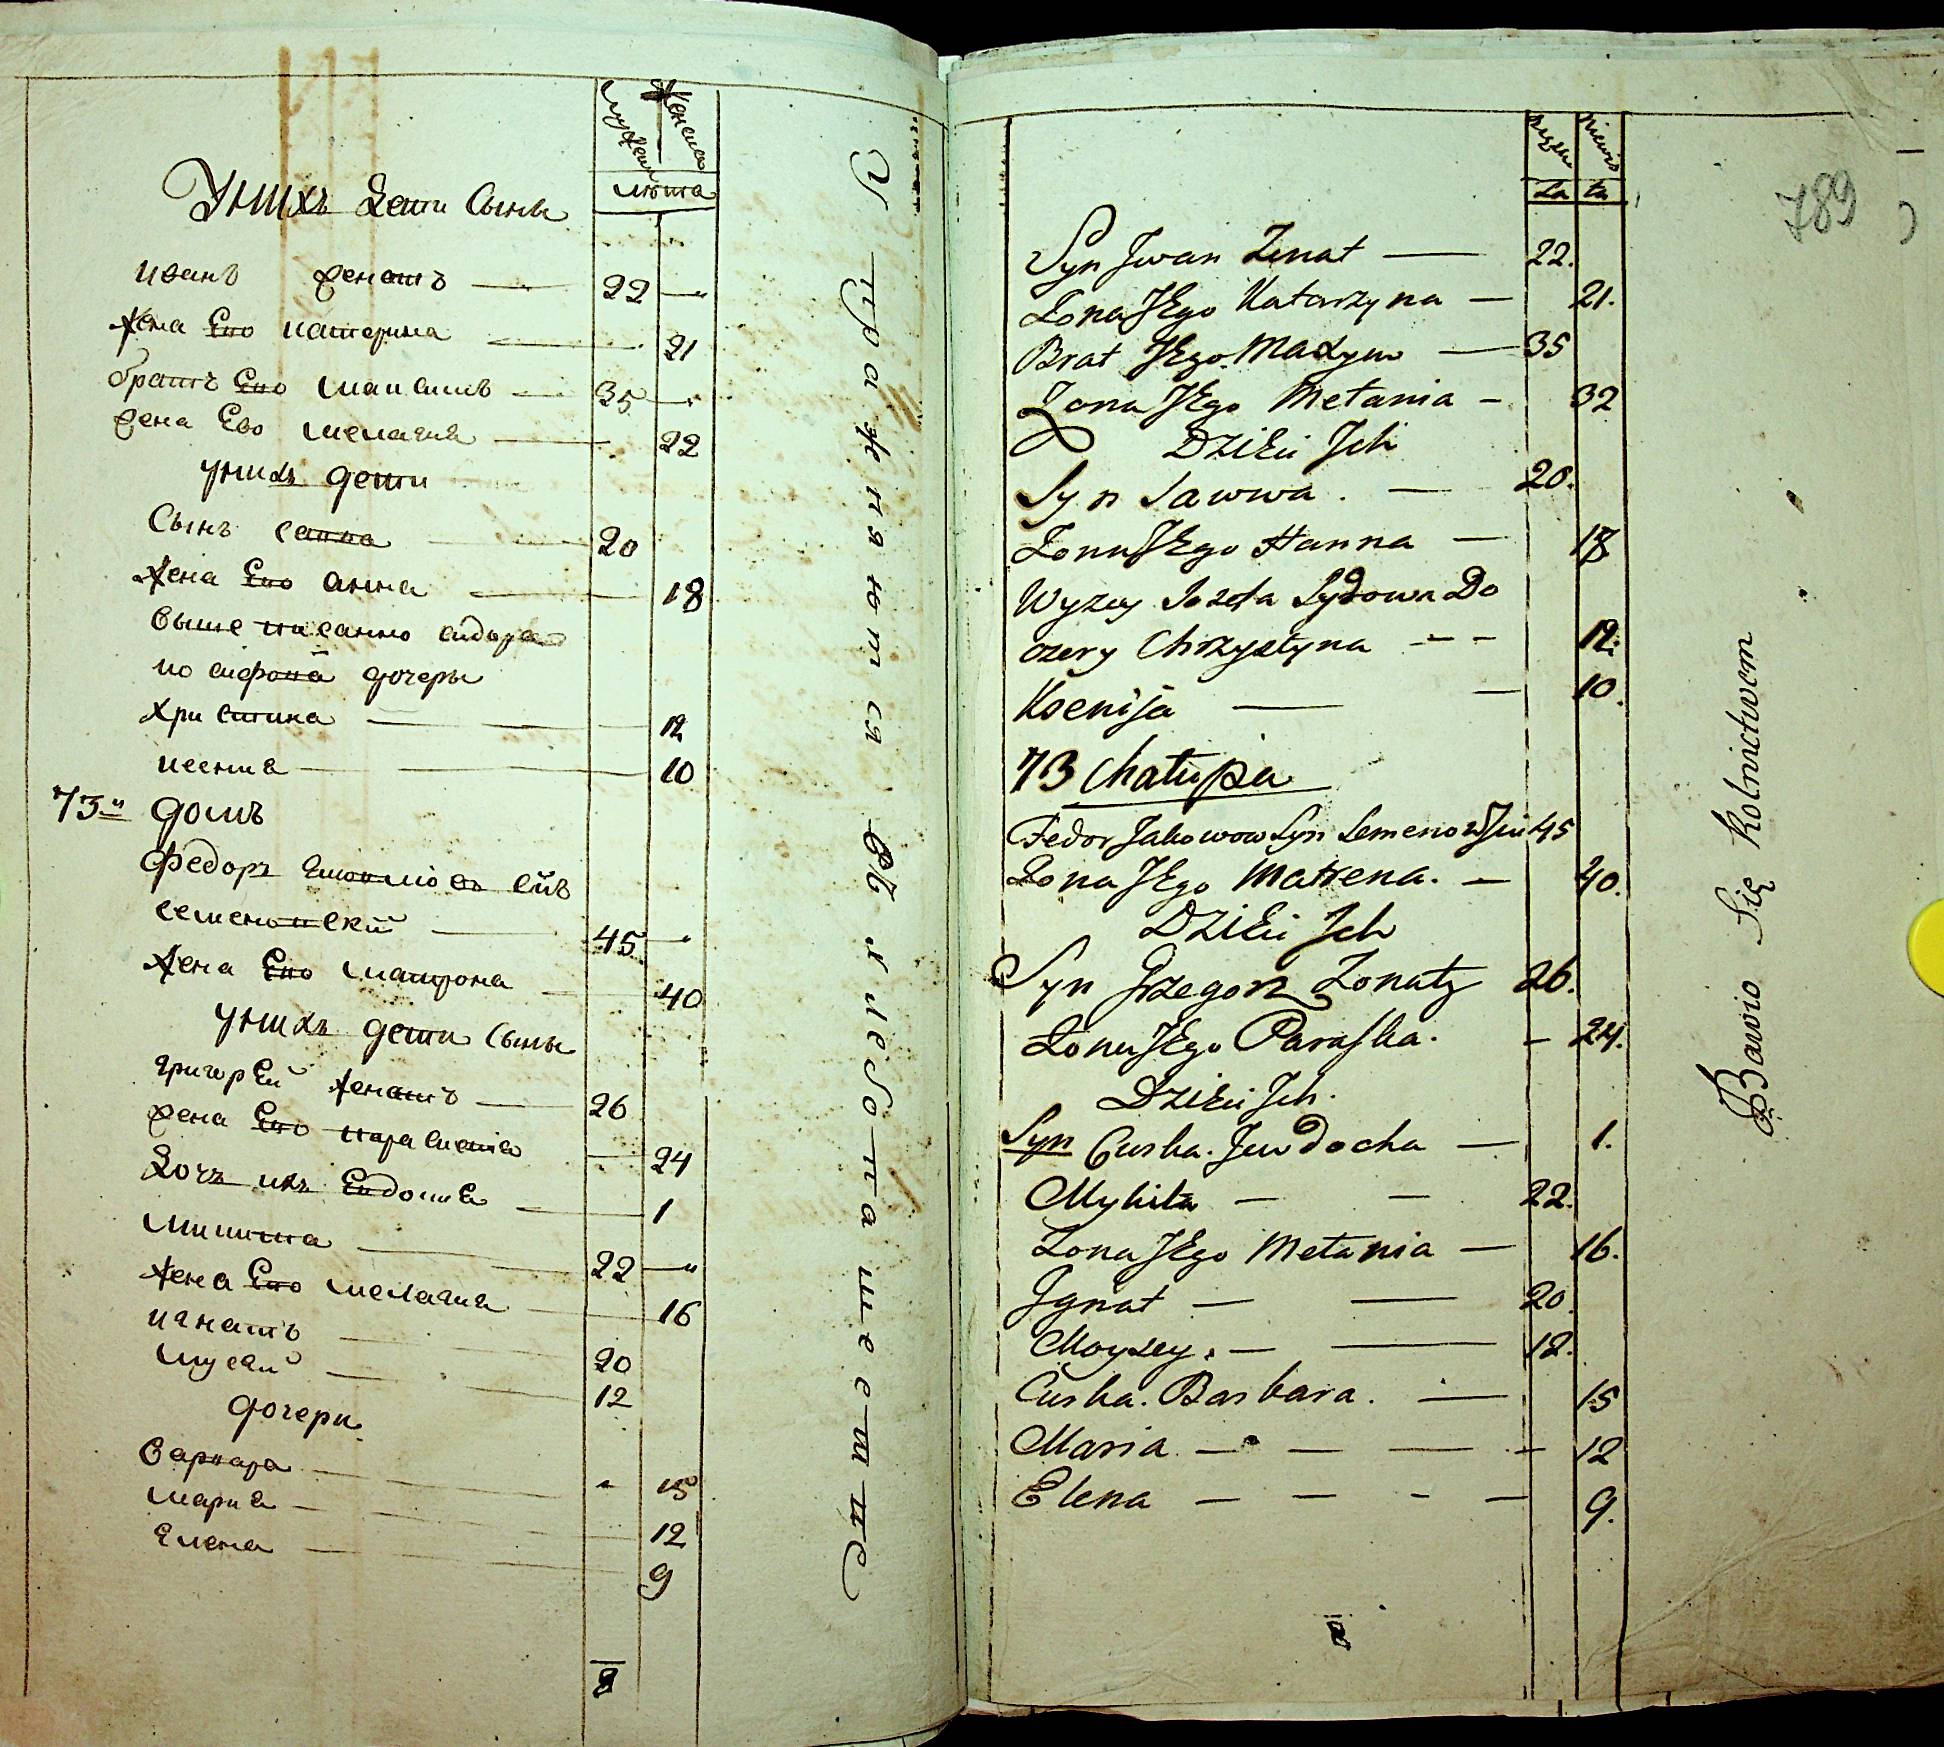 мужеск
женска
лѣта
У нихъ дети Сыны
иванъ женатъ — 22 —
жена Его катерина — 21
братъ Его максимъ — 35 —
жена Ево мелания — 22
у нихъ дети
Сынъ савва — 20
жена Его анна — 18
выше писанно сидора
дочеры
христина — 12
ксения — 10
73й домъ
Федоръ сйъ
семеновский — 45 —
жена Его матрона — 40
у нихъ дети Сыны
григорЕй женатъ — 26
жена Его параскевия — 24
Дочъ ихъ Евдокия — 1
микита — 22 —
жена Его мелания — 16
игнатъ — 20
мусей — 12
дочери
варвара — 15
мария — 12
Елена — 9
Упражняются въ хлебопашестве
789
Syn Jwan Żenat — 22.
Żona JEgo Katarzyna — 21.
Brat JEgo Maxym — 35
Żona JEgo Mełania — 32
DziEci Jch
Syn Sawwa . — 20.
Żona JEgo Hanna — 18
Wyzey Sydowa Do
czery Chrzystyna — — 12.
Ksenija — — 10.
73 Chałupa
Fedor Jakowow Syn Semenowski 45
Żona JEgo Matrena. — 40.
DziEci Jch
Syn Grzegorz Żonaty 26.
Żona JEgo Paraska. — 24.
DziEci Jch.
Syn Curka. Jewdocha — 1.
Mykita — — 22.
Żona JEgo Mełania — 16.
Jgnat — — 20.
Moyzey. — — 12.
Curka. Barbara. — 15
Maria — — — — 12
Elena — — - — 9.
Bawio Się Rolnictwem